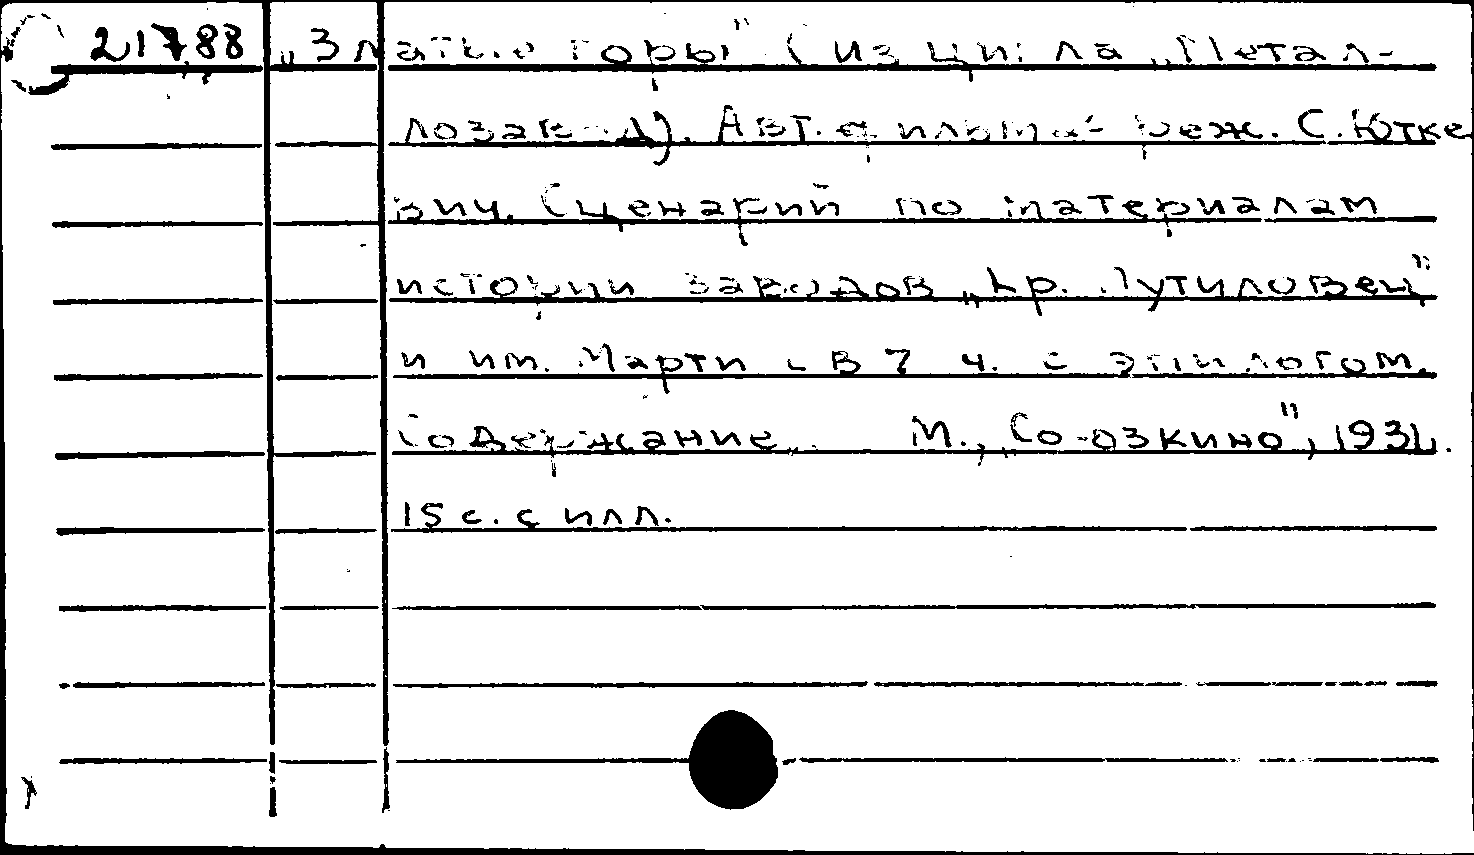 21788 „Златые горы" (из цикла „Метал-
лозавод). Авт. фильма- реж. С. Ютке
вич. Сценарий по материалам
истории заводов „Кр. Путиловец"
и им. Марти - В 7 ч. с эпилогом.
Содержание. М., „Союзкино", 1931.
15 с. с илл.